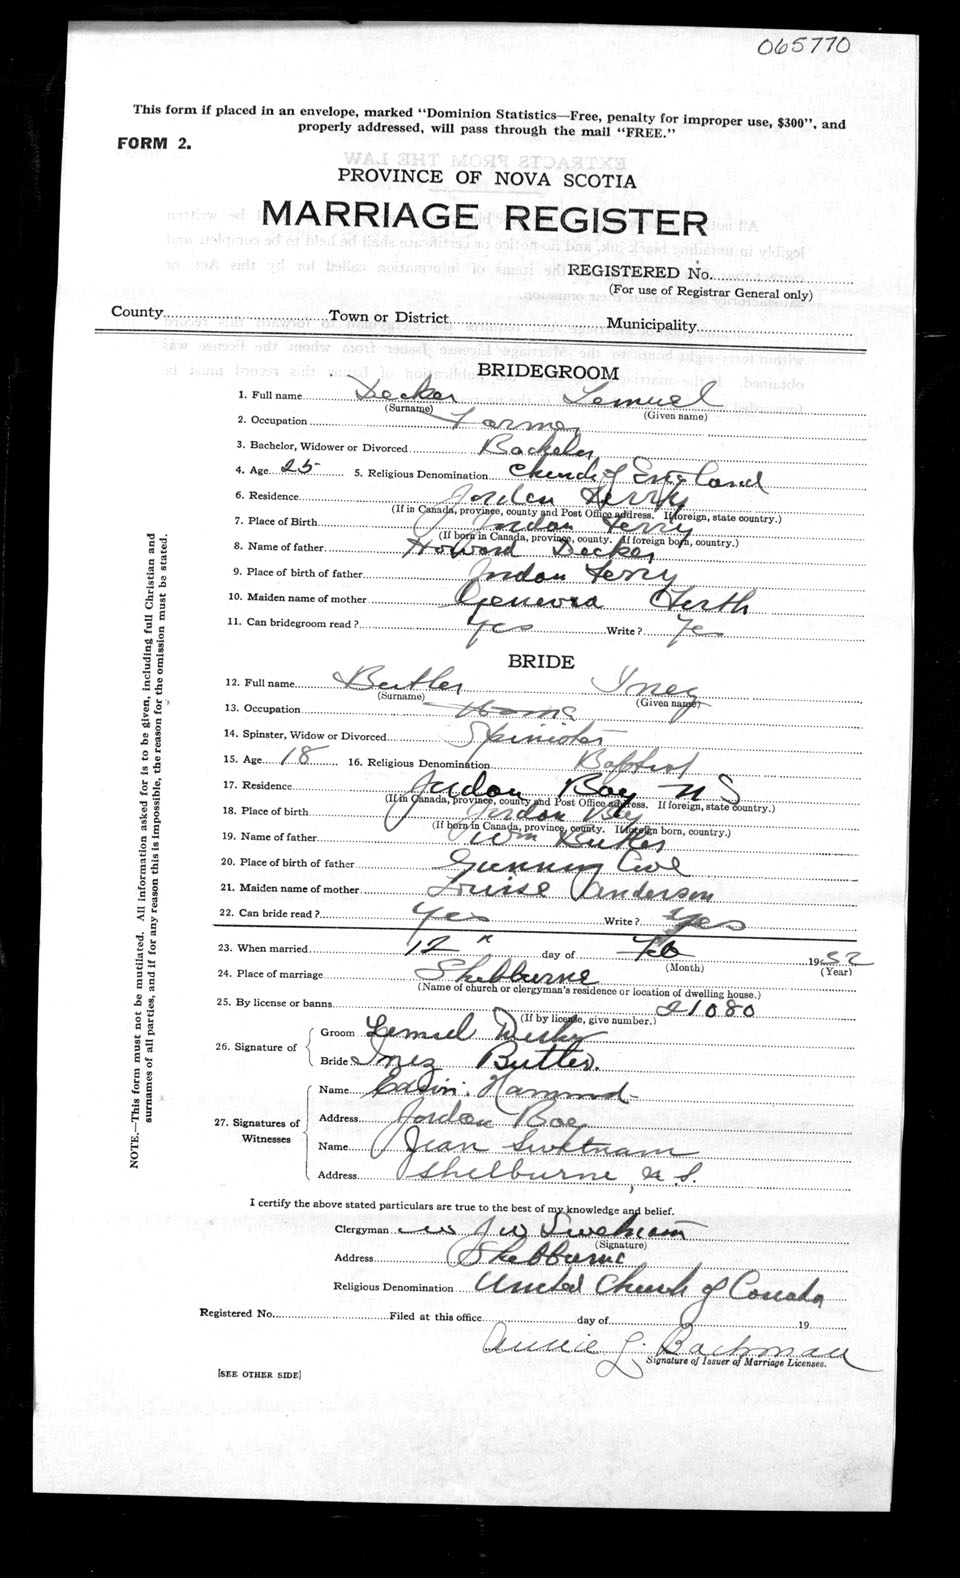 065770
This form if placed in an envelope, marked "Dominion Statistics—Free, penalty for improper use, $300", and
properly addressed, will pass through the mail "FREE."
FORM 2.
PROVINCE OF NOVA SCOTIA
MARRIAGE REGISTER
REGISTERED No.
(For use of Registrar General only)
County Town or District Municipality
BRIDEGROOM
1. Full name Decker Lemuel
(Surname) (Given name)
2. Occupation Farmer
3. Bachelor, Widower or Divorced Bachelor
4. Age 25 5. Religious Denomination Church of England
6. Residence Jordan Ferry
(If in Canada, province, county and Post Office address. If foreign, state country.)
7. Place of Birth Jordan Ferry
(If born in Canada, province, county. If foreign born, country.)
8. Name of father Howard Decker
9. Place of birth of father Jordan Ferry
10. Maiden name of mother Genevra
11. Can bridegroom read? Yes Write? Yes
BRIDE
12. Full name Butler Inez
(Surname) (Given name)
13. Occupation Home
14. Spinster, Widow or Divorced Spinster
15. Age 18 16. Religious Denomination Baptist
17. Residence Jordan Bay N S
(If in Canada, province, county and Post Office address. If foreign, state country.)
18. Place of birth Jordan Bay
(If born in Canada, province, county. If foreign born, country.)
19. Name of father Wm Butler
20. Place of birth of father Gunning Cove
21. Maiden name of mother Louise Anderson
22. Can bride read? Yes Write? Yes
23. When married 12" day of Feb 19 52
(Month) (Year)
24. Place of marriage Shelburne
(Name of church or clergyman's residence or location of dwelling house.)
25. By license or banns 21080
(If by license, give number.)
26. Signature of Groom Lemuel Decker
Bride Inez Butler.
27. Signatures of Witnesses
Name Edwin Hammond
Address Jordan Bay
Name Jean Swetnam
Address Shelburne, N.S.
I certify the above stated particulars are true to the best of my knowledge and belief.
Clergyman J W Swetnam
(Signature)
Address Shelburne
Religious Denomination United Church of Canada
Registered No. Filed at this office day of 19
Annie L. Bachman
Signature of Issuer of Marriage Licenses.
[SEE OTHER SIDE]
NOTE.—This form must not be mutilated. All information asked for is to be given, including full Christian and
surnames of all parties, and if for any reason this is impossible, the reason for the omission must be stated.